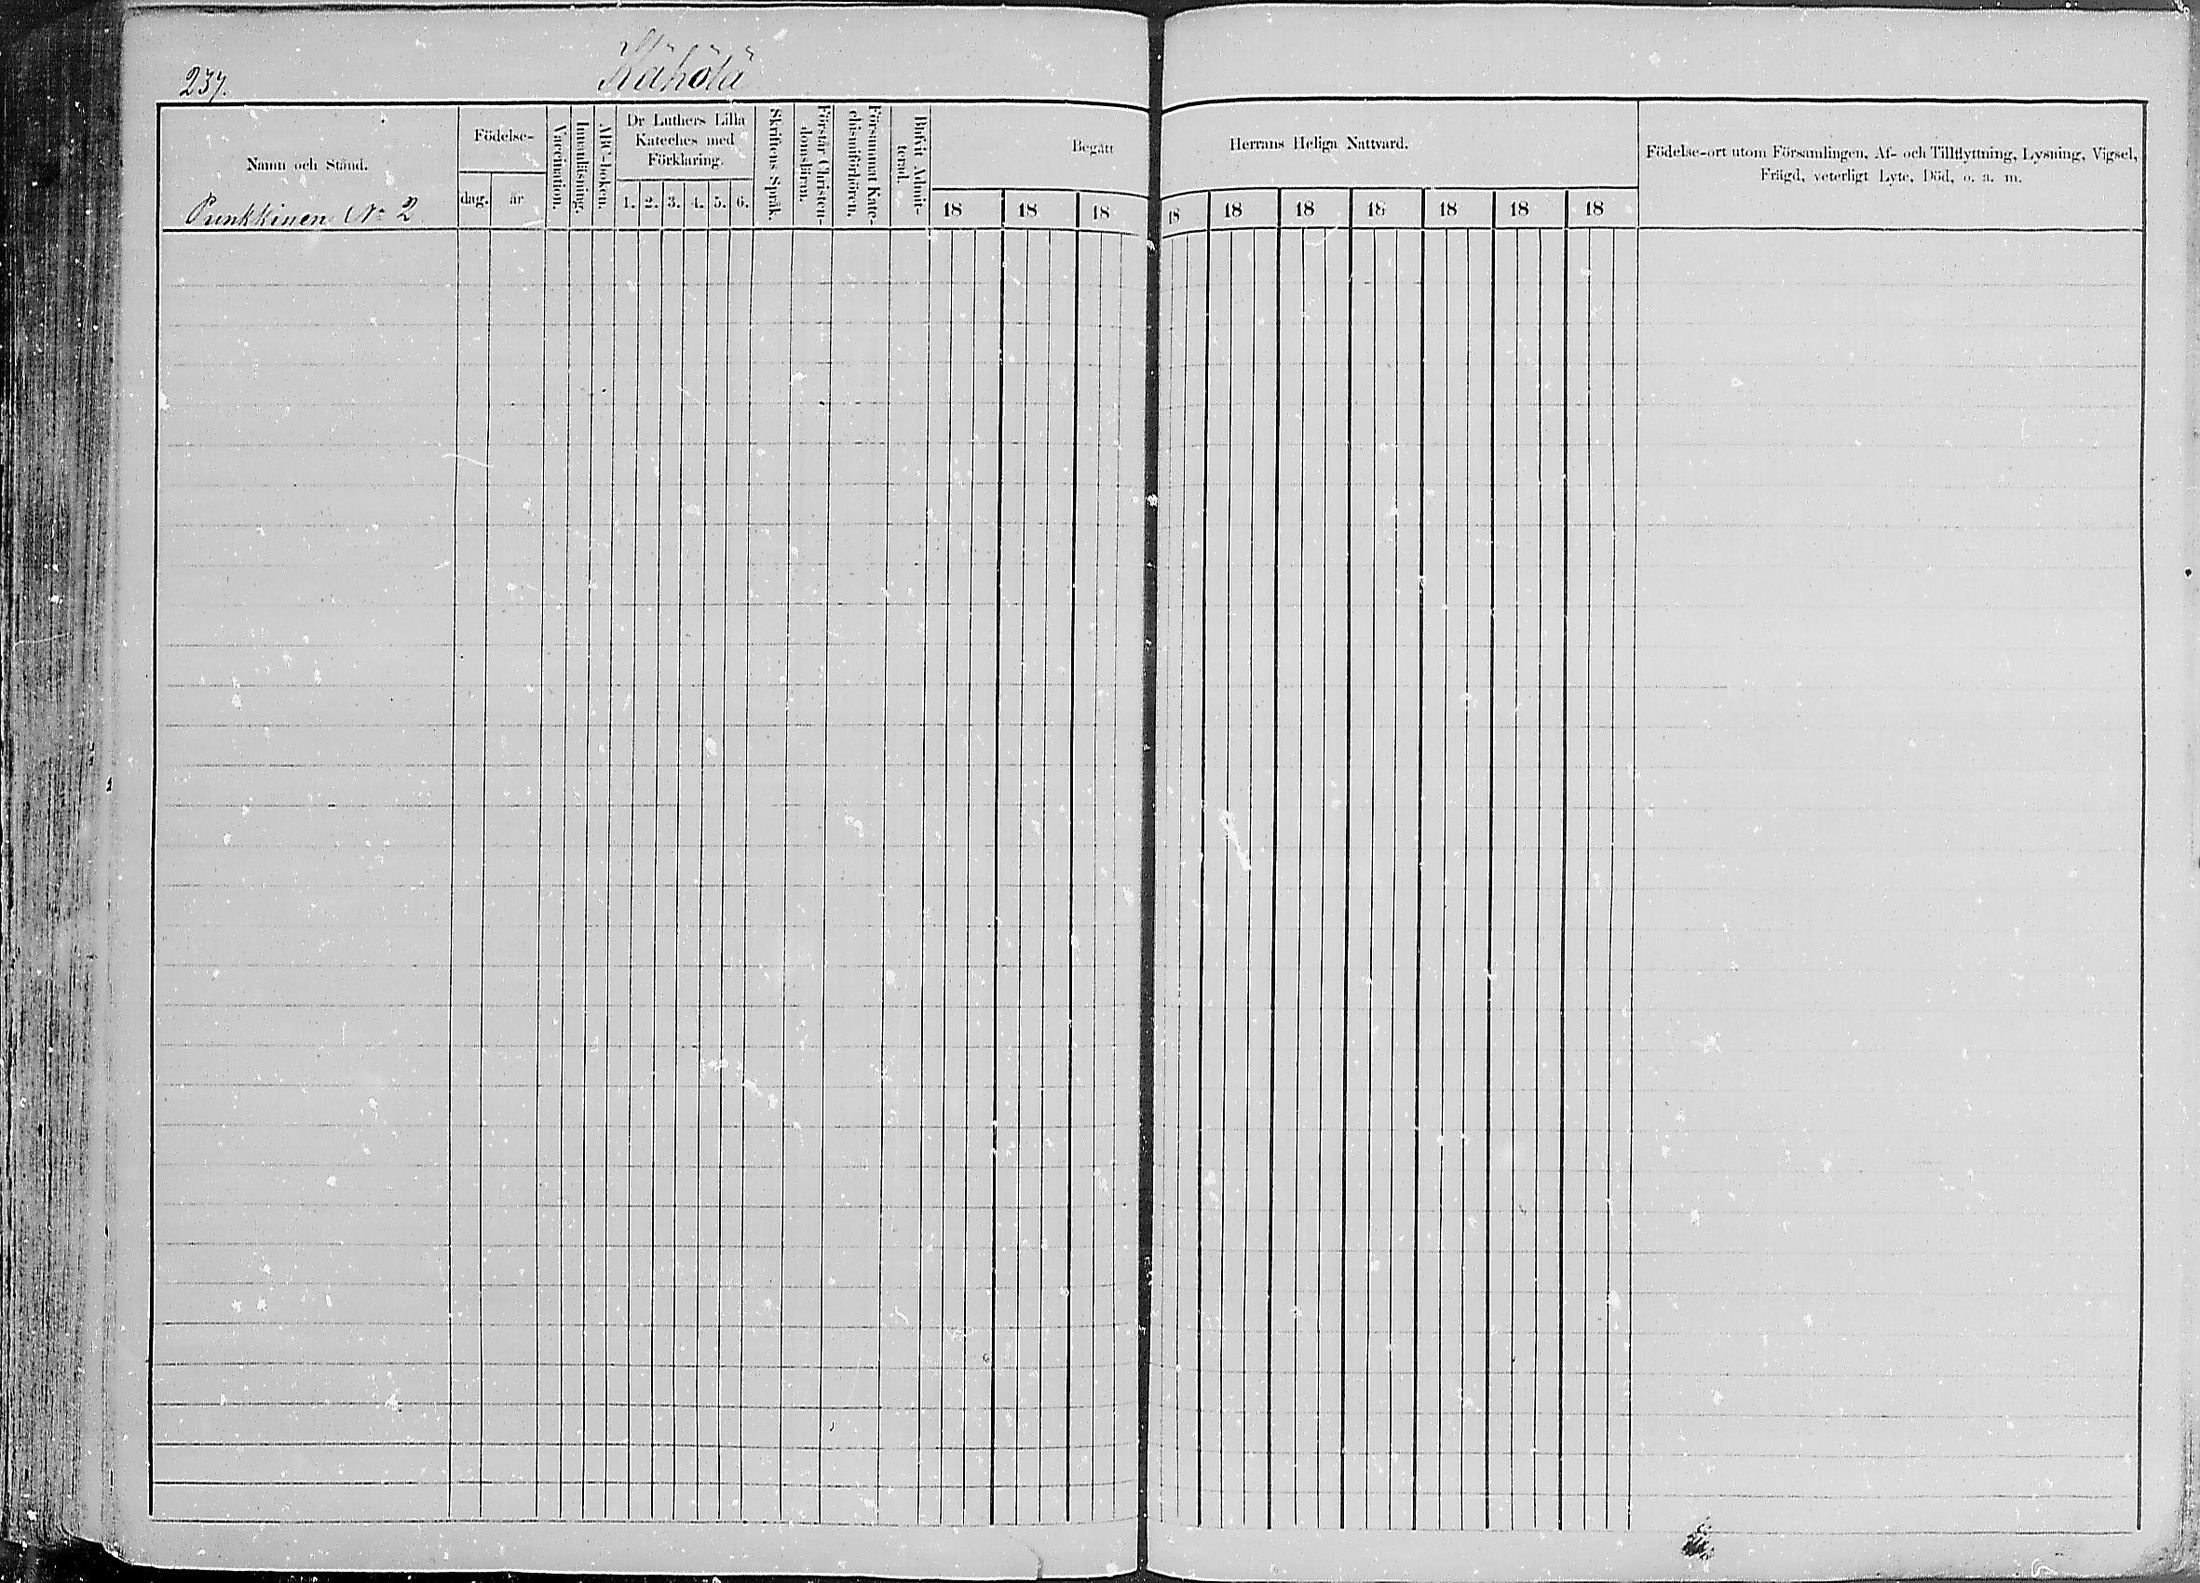 237.
Kähölä
Namn och Stånd.
Punkkinen No 2
Födelse-
dag. år
Vaccination.
Innanläsning.
ABC-boken.
Dr Luthers Lilla
Kateches med
Förklaring.
1. 2. 3. 4. 5. 6.
Skriftens Språk.
Förstår Christen-
domsläran.
Försummat Kate-
chismiförhören.
Blifvit Admit-
terad.
Begått
18 18 18
Herrans Heliga Nattvard.
18 18 18 18 18 18 18
Födelse-ort utom Församlingen, Af- och Tillflyttning, Lysning, Vigsel,
Frägd, veterligt Lyte, Död, o. a. m.